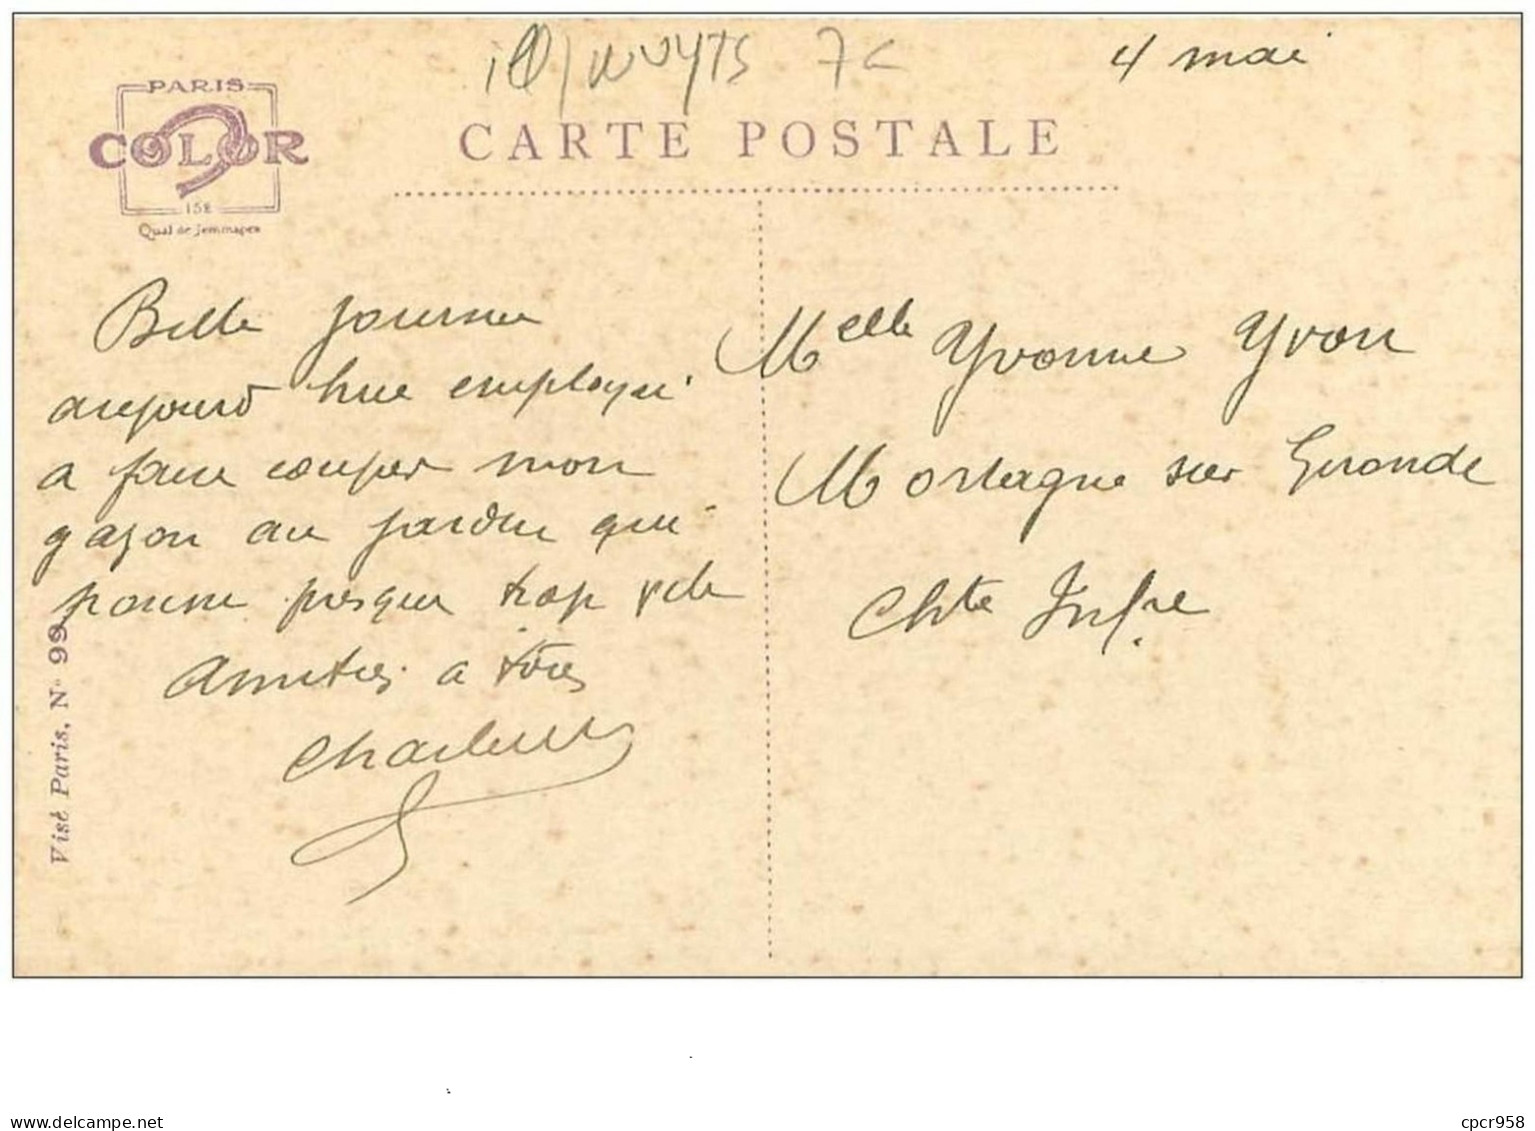 ill/WUYTS 7c
4 mai
PARIS
COLOR
158
Quai de Jemmapes
CARTE POSTALE
Belle journée
aujourd hue employé
a faire couper mon
gazon au jardin qui
pousse presque trop vite
Amitiés a tous
Melle Yvonne Yvon
Mortagne sur Gironde
Chte Infre
Visé Paris, N° 99
delcampe.net
cpcr958